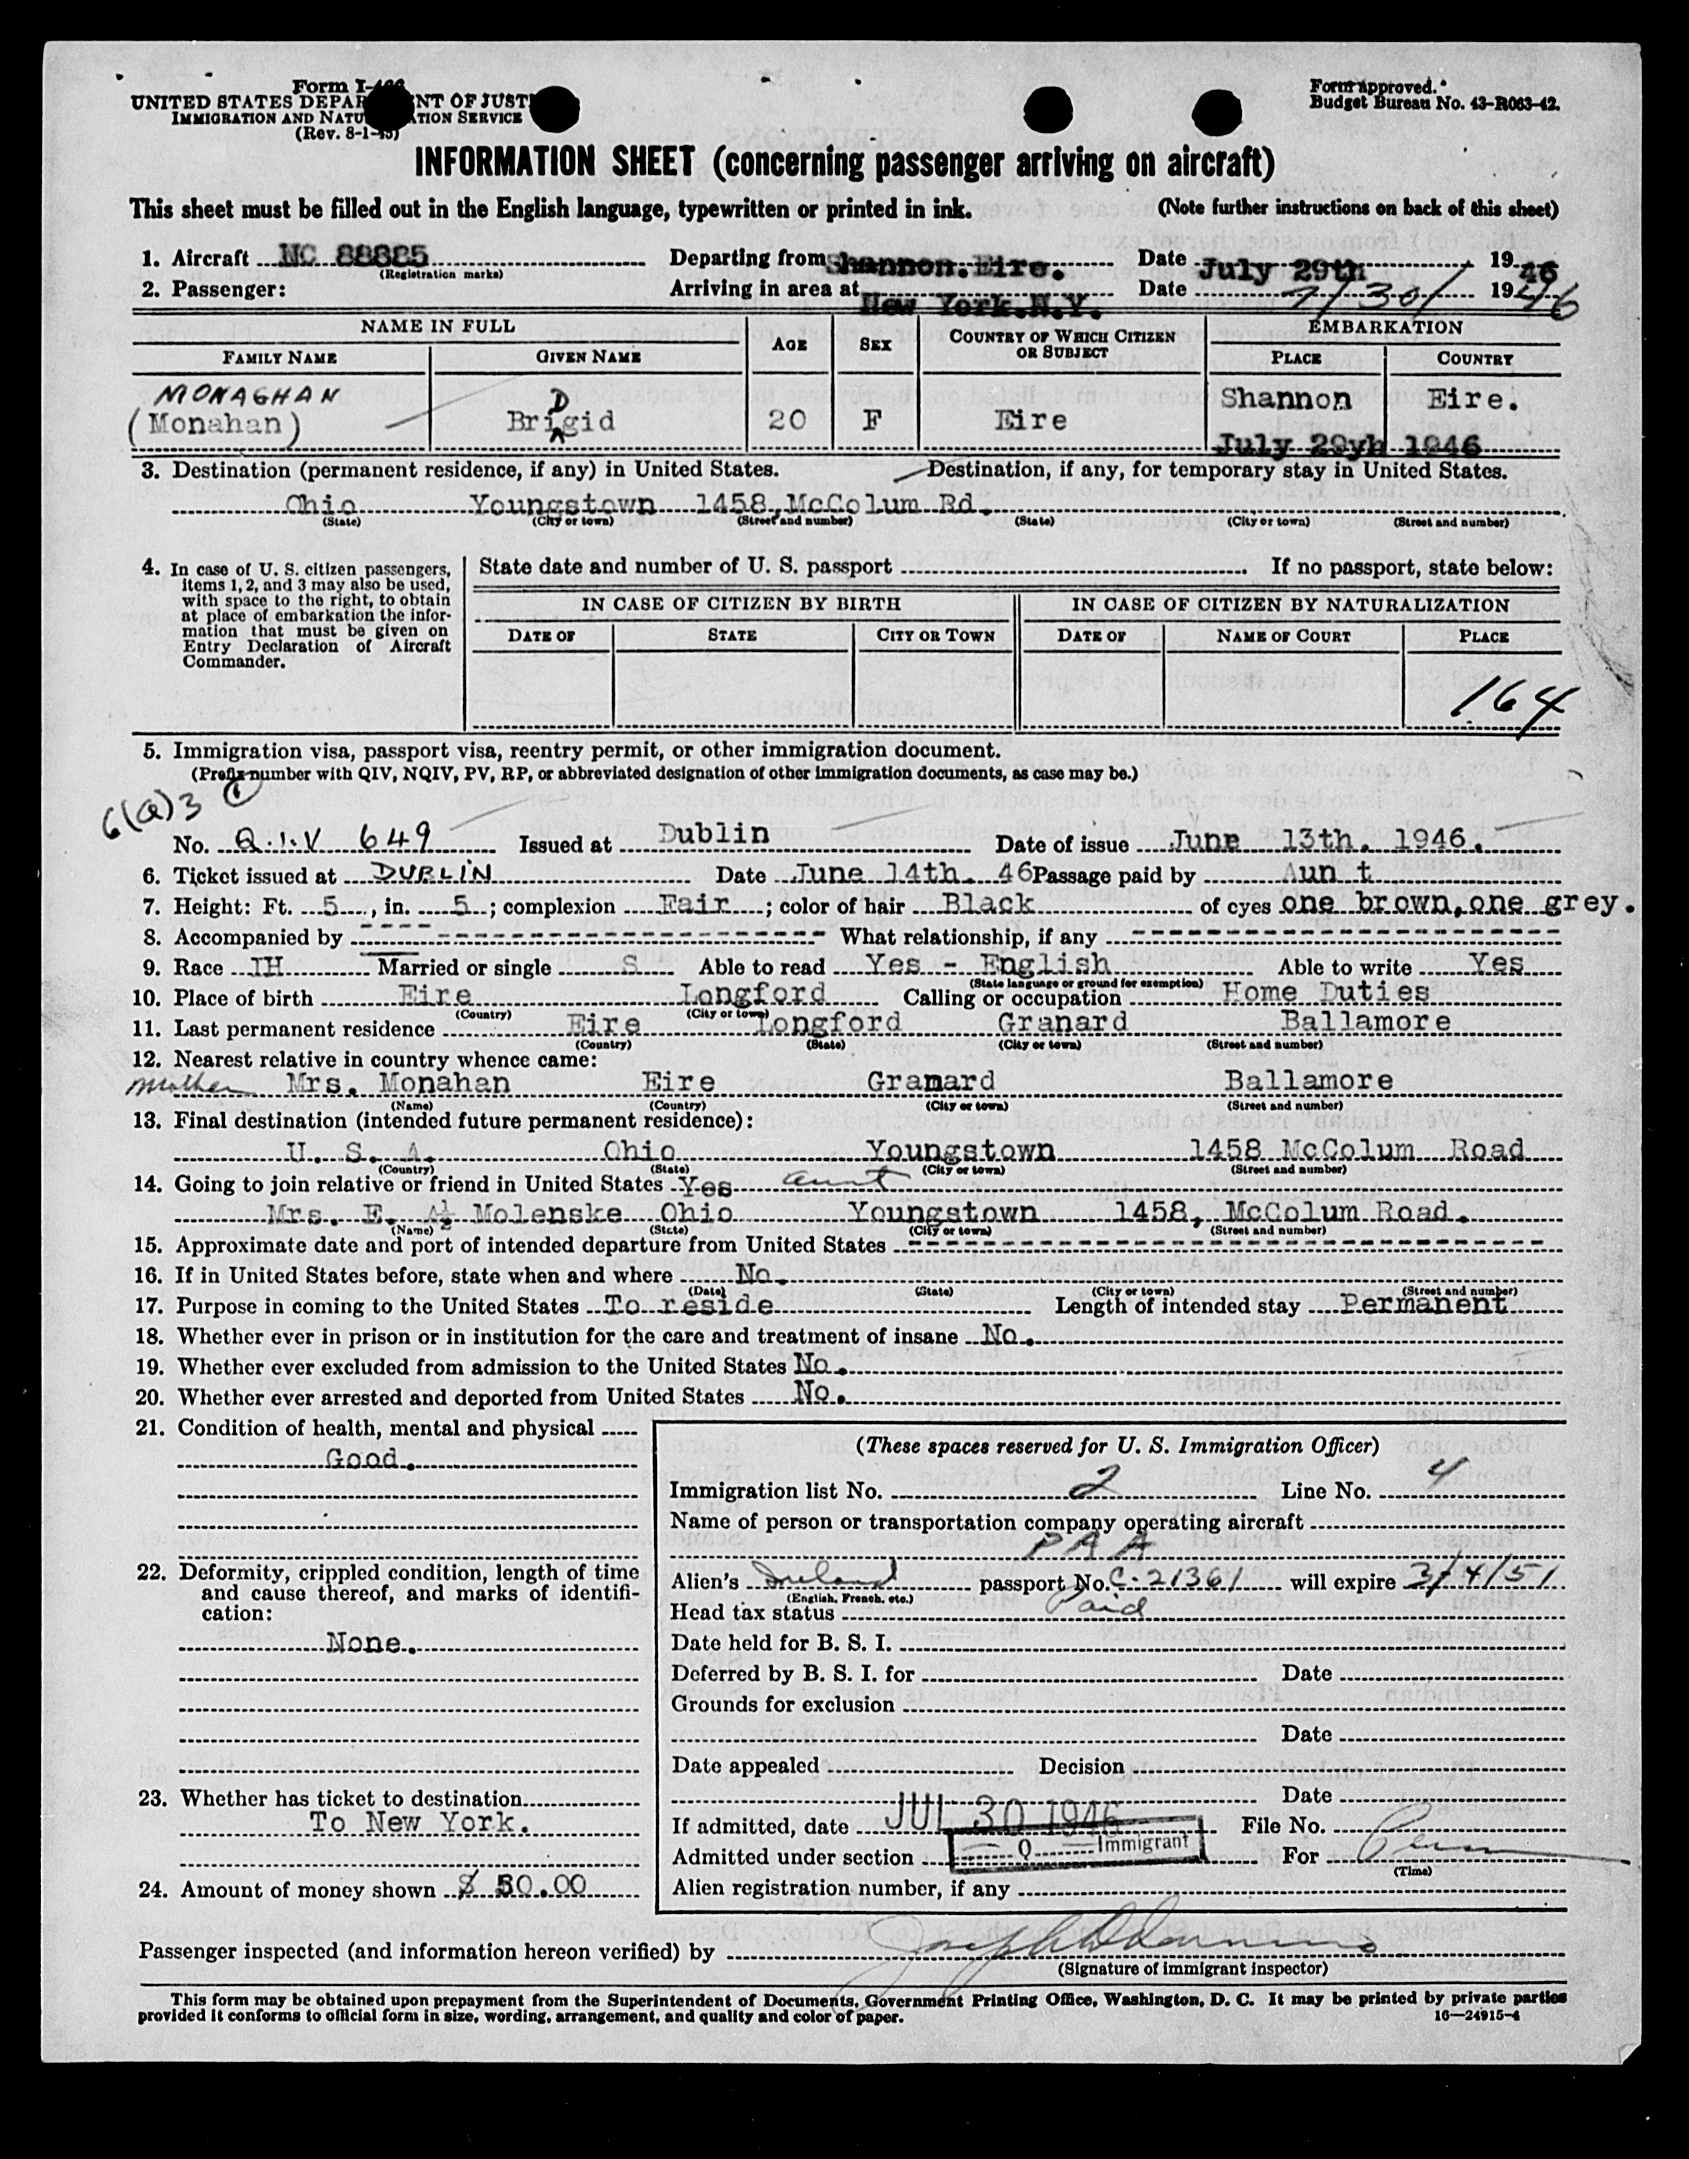 Form I-466
UNITED STATES DEPARTMENT OF JUSTICE
IMMIGRATION AND NATURALIZATION SERVICE
(Rev. 8-1-45)
Form approved.
Budget Bureau No. 43-R063-42.
INFORMATION SHEET (concerning passenger arriving on aircraft)
This sheet must be filled out in the English language, typewritten or printed in ink. (Note further instructions on back of this sheet)
1. Aircraft NC 88885 Departing from Shannon. Eire. Date July 29th 1946
(Registration marks)
2. Passenger: Arriving in area at New York.N.Y. Date 7/30/ 1946
NAME IN FULL AGE SEX COUNTRY OF WHICH CITIZEN OR SUBJECT EMBARKATION
FAMILY NAME GIVEN NAME PLACE COUNTRY
MONAGHAN D Shannon Eire.
(Monahan) Brigid 20 F Eire
July 29yh 1946
3. Destination (permanent residence, if any) in United States. Destination, if any, for temporary stay in United States.
Ohio Youngstown 1458,McColum Rd.
(State) (City or town) (Street and number) (State) (City or town) (Street and number)
4. In case of U. S. citizen passengers, items 1, 2, and 3 may also be used, with space to the right, to obtain at place of embarkation the information that must be given on Entry Declaration of Aircraft Commander.
State date and number of U. S. passport If no passport, state below:
IN CASE OF CITIZEN BY BIRTH IN CASE OF CITIZEN BY NATURALIZATION
DATE OF STATE CITY OR TOWN DATE OF NAME OF COURT PLACE
164
5. Immigration visa, passport visa, reentry permit, or other immigration document.
(Prefix number with QIV, NQIV, PV, RP, or abbreviated designation of other immigration documents, as case may be.)
6(a)3 1
No. Q.I.V 649 Issued at Dublin Date of issue June 13th. 1946.
6. Ticket issued at DUBLIN Date June 14th. 46 Passage paid by Aun t
7. Height: Ft. 5, in. 5; complexion Fair; color of hair Black of eyes one brown,one grey.
8. Accompanied by What relationship, if any
9. Race IH Married or single S Able to read Yes - English Able to write Yes
(State language or ground for exemption)
10. Place of birth Eire Longford Calling or occupation Home Duties
(Country) (City or town)
11. Last permanent residence Eire Longford Granard Ballamore
(Country) (State) (City or town) (Street and number)
12. Nearest relative in country whence came:
mother Mrs. Monahan Eire Granard Ballamore
(Name) (Country) (City or town) (Street and number)
13. Final destination (intended future permanent residence):
U. S. A. Ohio Youngstown 1458 McColum Road
(Country) (State) (City or town) (Street and number)
14. Going to join relative or friend in United States Yes aunt
Mrs. E. A½ Molenske Ohio Youngstown 1458, McColum Road.
(Name) (State) (City or town) (Street and number)
15. Approximate date and port of intended departure from United States
16. If in United States before, state when and where No.
(Date) (State) (City or town) (Street and number)
17. Purpose in coming to the United States To reside Length of intended stay Permanent
18. Whether ever in prison or in institution for the care and treatment of insane No.
19. Whether ever excluded from admission to the United States No.
20. Whether ever arrested and deported from United States No.
21. Condition of health, mental and physical
Good.
22. Deformity, crippled condition, length of time and cause thereof, and marks of identification:
None.
23. Whether has ticket to destination
To New York.
24. Amount of money shown $ 50.00
(These spaces reserved for U. S. Immigration Officer)
Immigration list No. 2 Line No. 4
Name of person or transportation company operating aircraft
PAA
Alien's Ireland passport No. C-21361 will expire 3/4/51
(English, French, etc.)
Head tax status Paid
Date held for B. S. I.
Deferred by B. S. I. for Date
Grounds for exclusion
Date
Date appealed Decision
Date
If admitted, date JUL 30 1946 File No.
Admitted under section Q Immigrant For Perm
(Time)
Alien registration number, if any
Passenger inspected (and information hereon verified) by
(Signature of immigrant inspector)
This form may be obtained upon prepayment from the Superintendent of Documents, Government Printing Office, Washington, D. C. It may be printed by private parties
provided it conforms to official form in size, wording, arrangement, and quality and color of paper. 16—24915-4